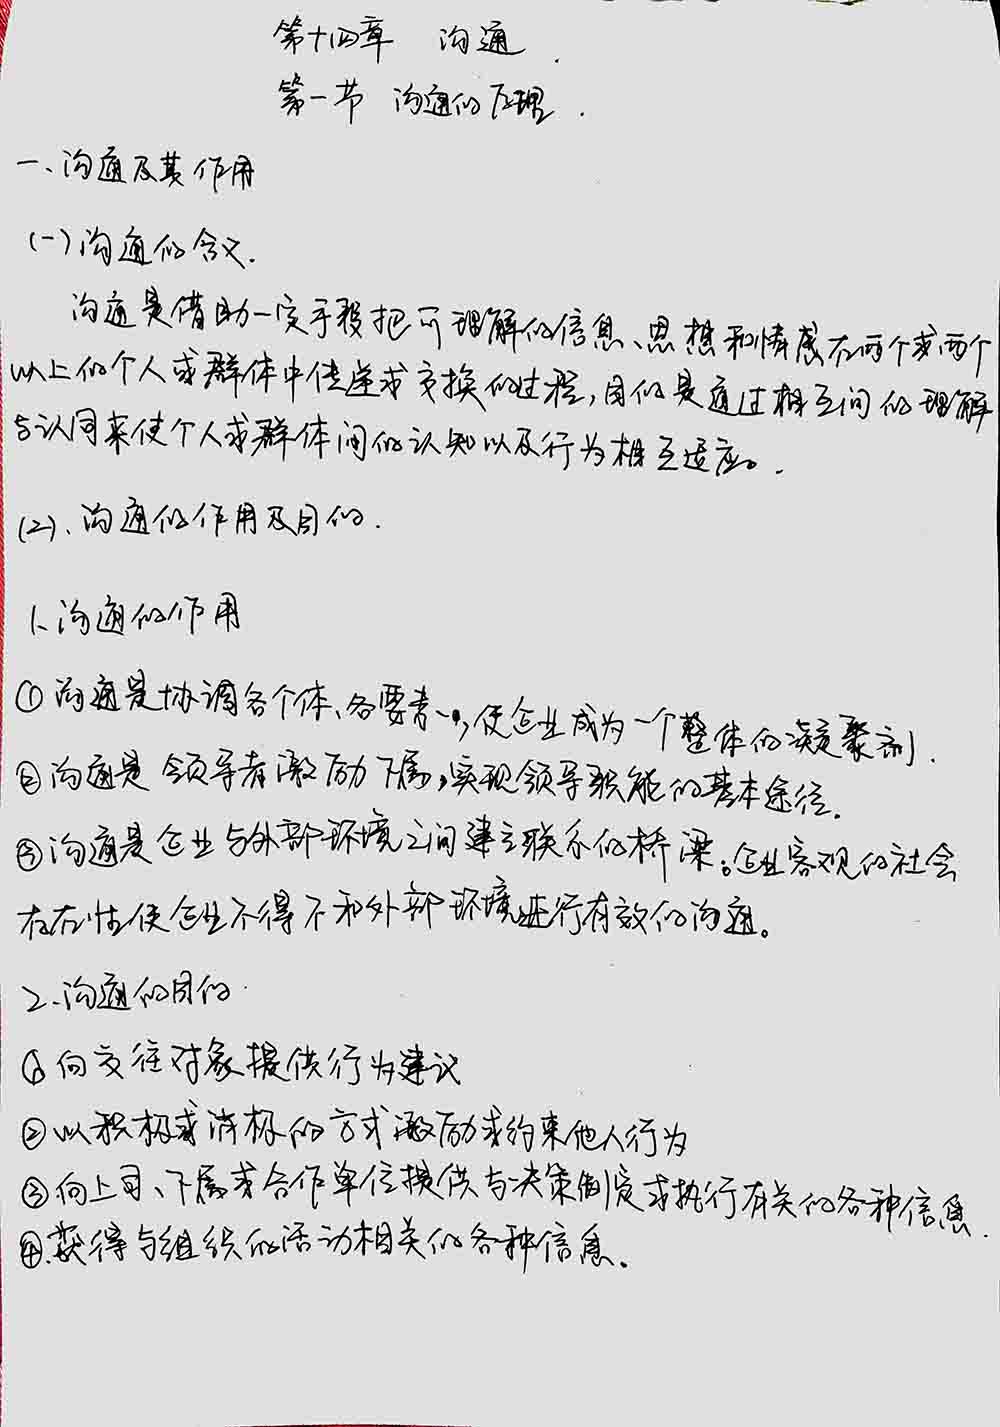 第十四章 沟通.
第一节 沟通的原理.
一、沟通及其作用
(一)沟通的含义.
沟通是借助一定手段把可理解的信息、思想和情感在两个或两个
以上的个人或群体中传递或交换的过程,目的是通过相互间的理解
与认同来使个人或群体间的认知以及行为相互适应。.
(2)、沟通的作用及目的.
1、沟通的作用
①沟通是协调各个体、各要素,使企业成为一个整体的凝聚剂.
②沟通是领导者激励下属,实现领导职能的基本途径.
③沟通是企业与外部环境之间建立联系的桥梁。企业客观的社会
存在性使企业不得不和外部环境进行有效的沟通。
2、沟通的目的.
①向交往对象提供行为建议
②以积极或消极的方式激励或约束他人行为
③向上司、下属或合作单位提供与决策制定或执行有关的各种信息.
④.获得与组织的活动相关的各种信息.